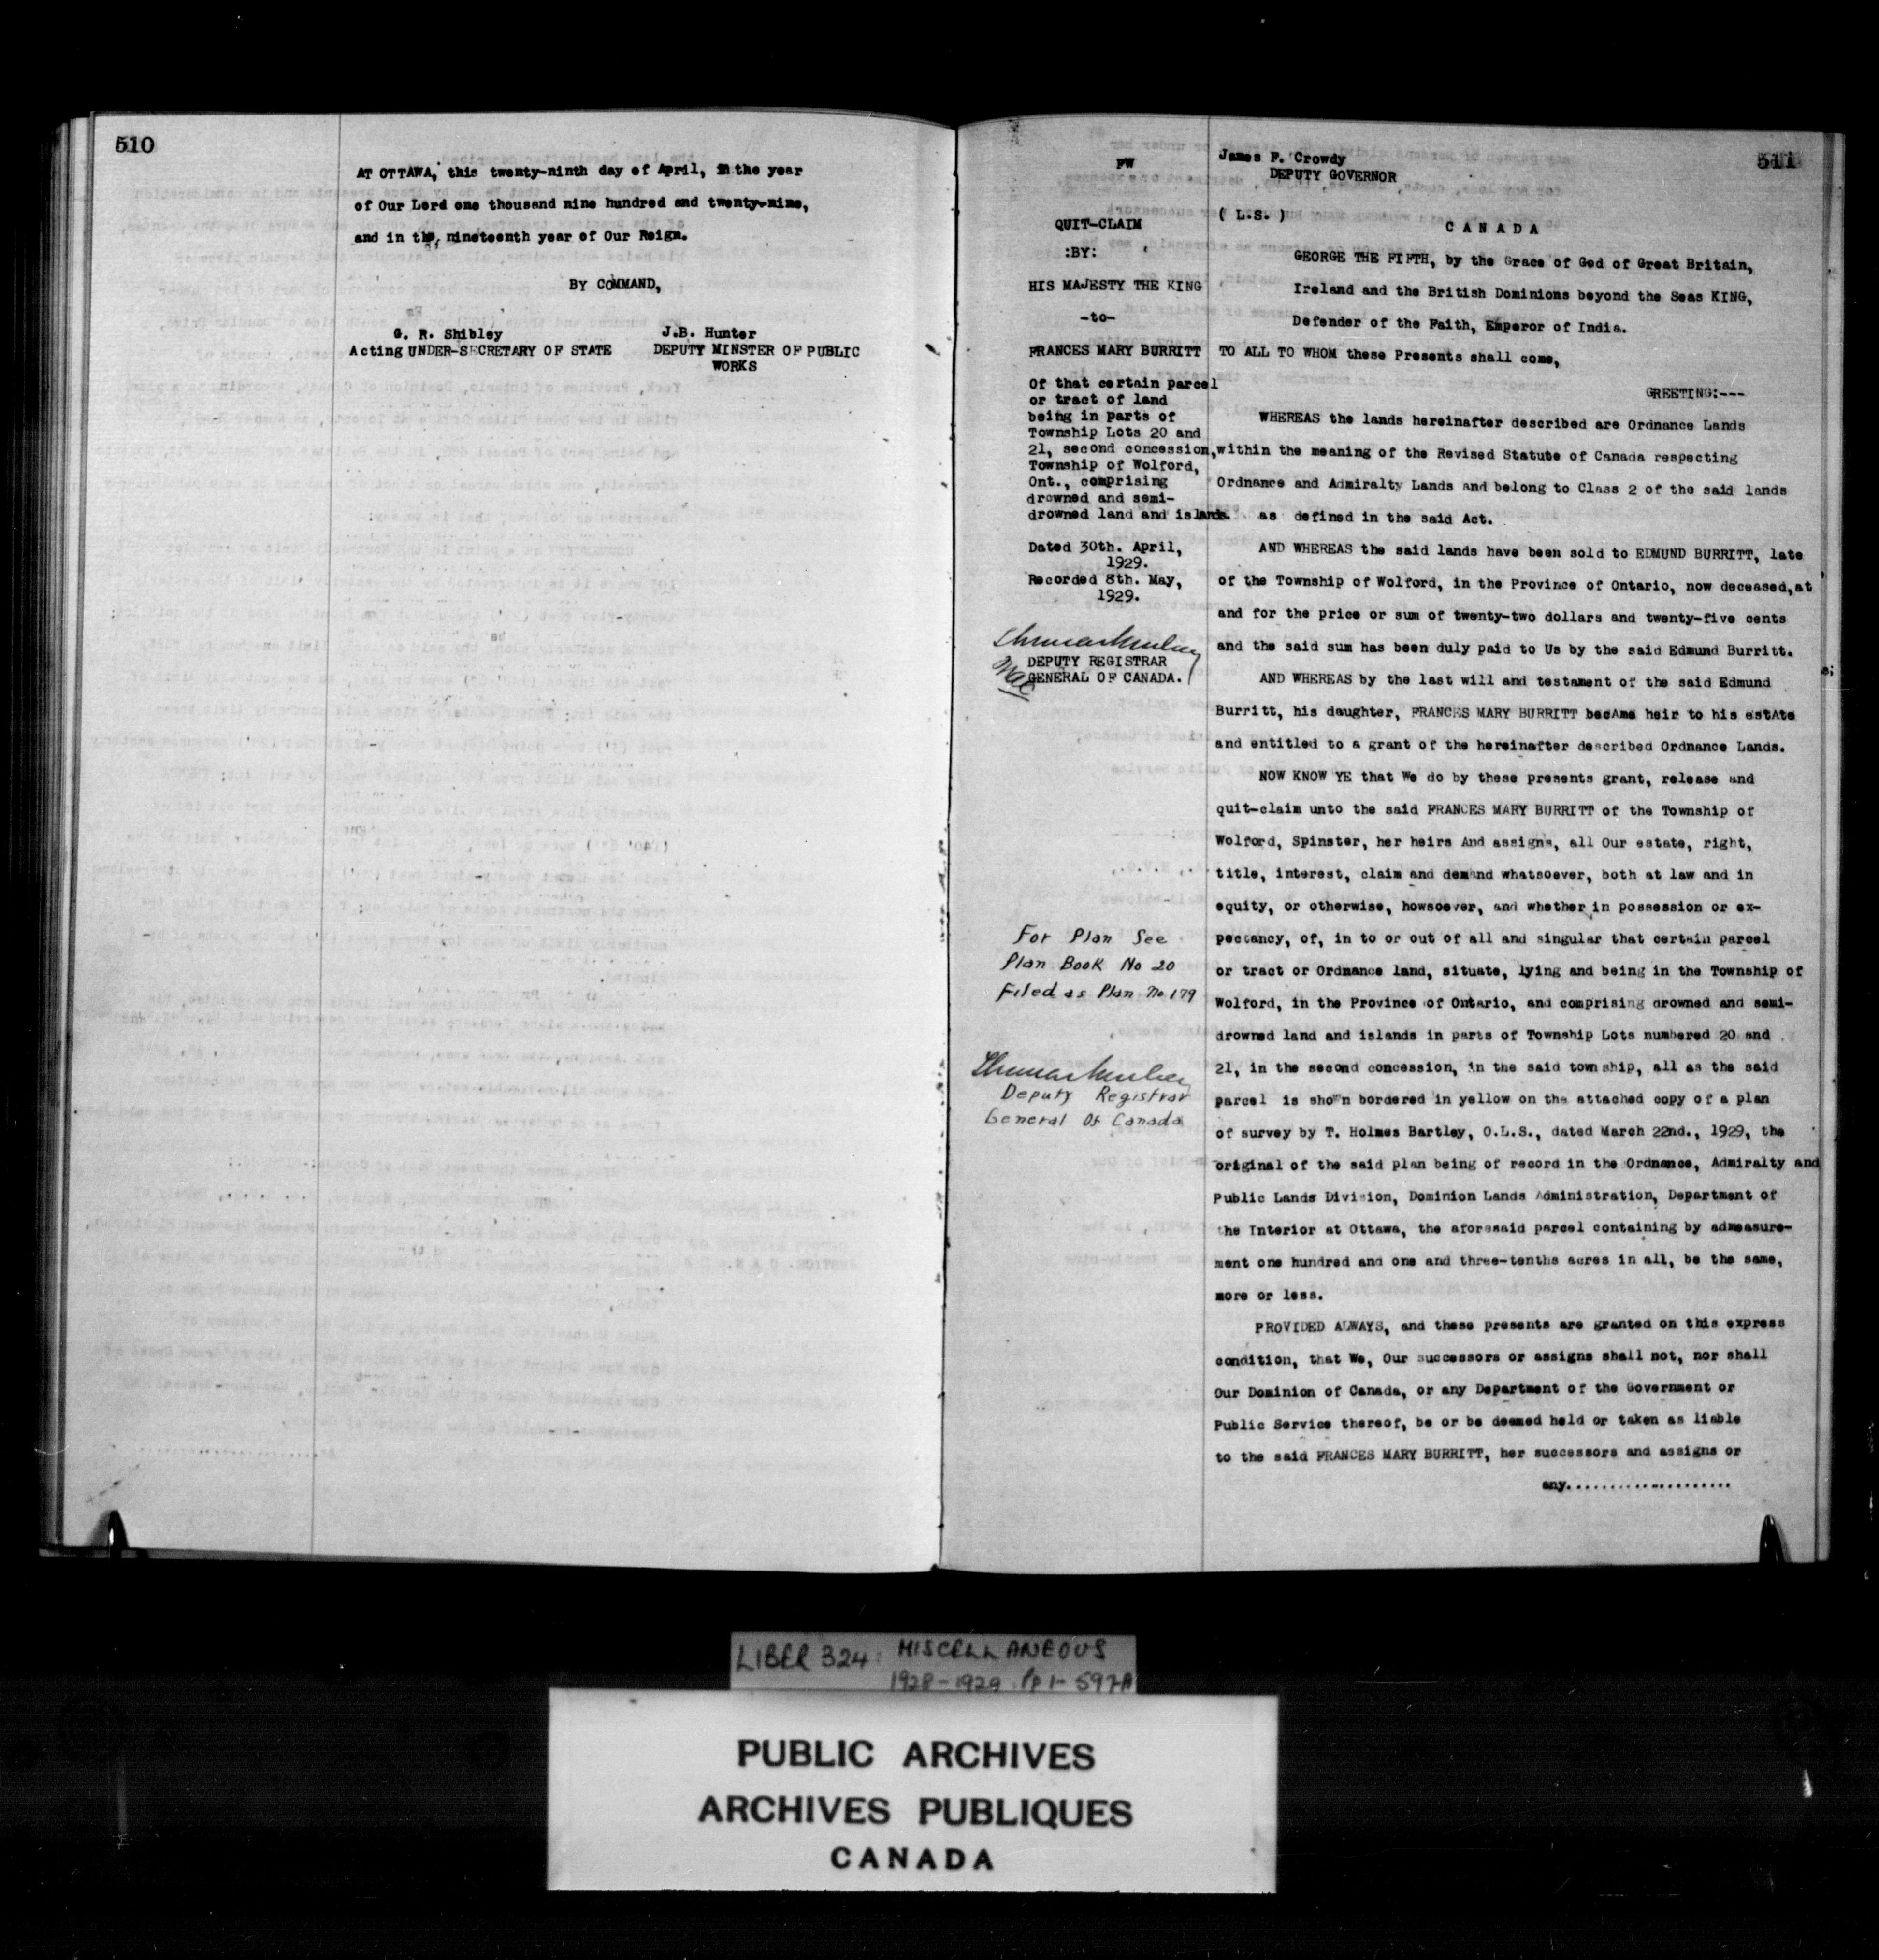 510
AT OTTAWA, this twenty-ninth day of April, in the year
of Our Lord one thousand nine hundred and twenty-nine,
and in the, nineteenth year of Our Reign.
BY COMMAND,
G. R. Shibley
Acting UNDER-SECRETARY OF STATE
J.B. Hunter
DEPUTY MINSTER OF PUBLIC
WORKS
511
FW
QUIT-CLAIM
:BY:
HIS MAJESTY THE KING
-to-
FRANCES MARY BURRITT
Of that certain parcel
or tract of land
being in parts of
Township Lots 20 and
21, second concession,
Township of Wolford,
Ont., comprising
drowned and semi-
drowned land and islands.
Dated 30th. April,
1929.
Recorded 8th. May,
1929.
DEPUTY REGISTRAR
GENERAL OF CANADA.
For Plan See
Plan Book No 20
Filed as Plan No 179
Deputy Registrar
General Of Canada
James F. Crowdy
DEPUTY GOVERNOR
( L.S. )
C A N A D A
GEORGE THE FIFTH, by the Grace of God of Great Britain,
Ireland and the British Dominions beyond the Seas KING,
Defender of the Faith, Emperor of India.
TO ALL TO WHOM these Presents shall come,
GREETING:---
WHEREAS the lands hereinafter described are Ordnance Lands
within the meaning of the Revised Statute of Canada respecting
Ordnance and Admiralty Lands and belong to Class 2 of the said lands
as defined in the said Act.
AND WHEREAS the said lands have been sold to EDMUND BURRITT, late
of the Township of Wolford, in the Province of Ontario, now deceased, at
and for the price or sum of twenty-two dollars and twenty-five cents
and the said sum has been duly paid to Us by the said Edmund Burritt.
AND WHEREAS by the last will and testament of the said Edmund
Burritt, his daughter, FRANCES MARY BURRITT becAme heir to his estAte
and entitled to a grant of the hereinafter described Ordnance Lands.
NOW KNOW YE that We do by these presents grant, release and
quit-claim unto the said FRANCES MARY BURRITT of the Township of
Wolford, Spinster, her heirs And assigns, all Our estate, right,
title, interest, claim and demand whatsoever, both at law and in
equity, or otherwise, howsoever, and whether in possession or ex-
pectancy, of, in to or out of all and singular that certain parcel
or tract or Ordnance land, situate, lying and being in the Township of
Wolford, in the Province of Ontario, and comprising drowned and semi-
drowned land and islands in parts of Township Lots numbered 20 and
21, in the second concession, in the said township, all as the said
parcel is shown bordered in yellow on the attached copy of a plan
of survey by T. Holmes Bartley, O.L.S., dated March 22nd., 1929, the
original of the said plan being of record in the Ordnance, Admiralty and
Public Lands Division, Dominion Lands Administration, Department of
the Interior at Ottawa, the aforesaid parcel containing by admeasure-
ment one hundred and one and three-tenths acres in all, be the same,
more or less.
PROVIDED ALWAYS, and these presents are granted on this express
condition, that We, Our successors or assigns shall not, nor shall
Our Dominion of Canada, or any Department of the Government or
Public Service thereof, be or be deemed held or taken as liable
to the said FRANCES MARY BURRITT, her successors and assigns or
any....................
LIBER 324: MISCELLANEOUS
1928-1929. Pp 1-597A
PUBLIC ARCHIVES
ARCHIVES PUBLIQUES
CANADA